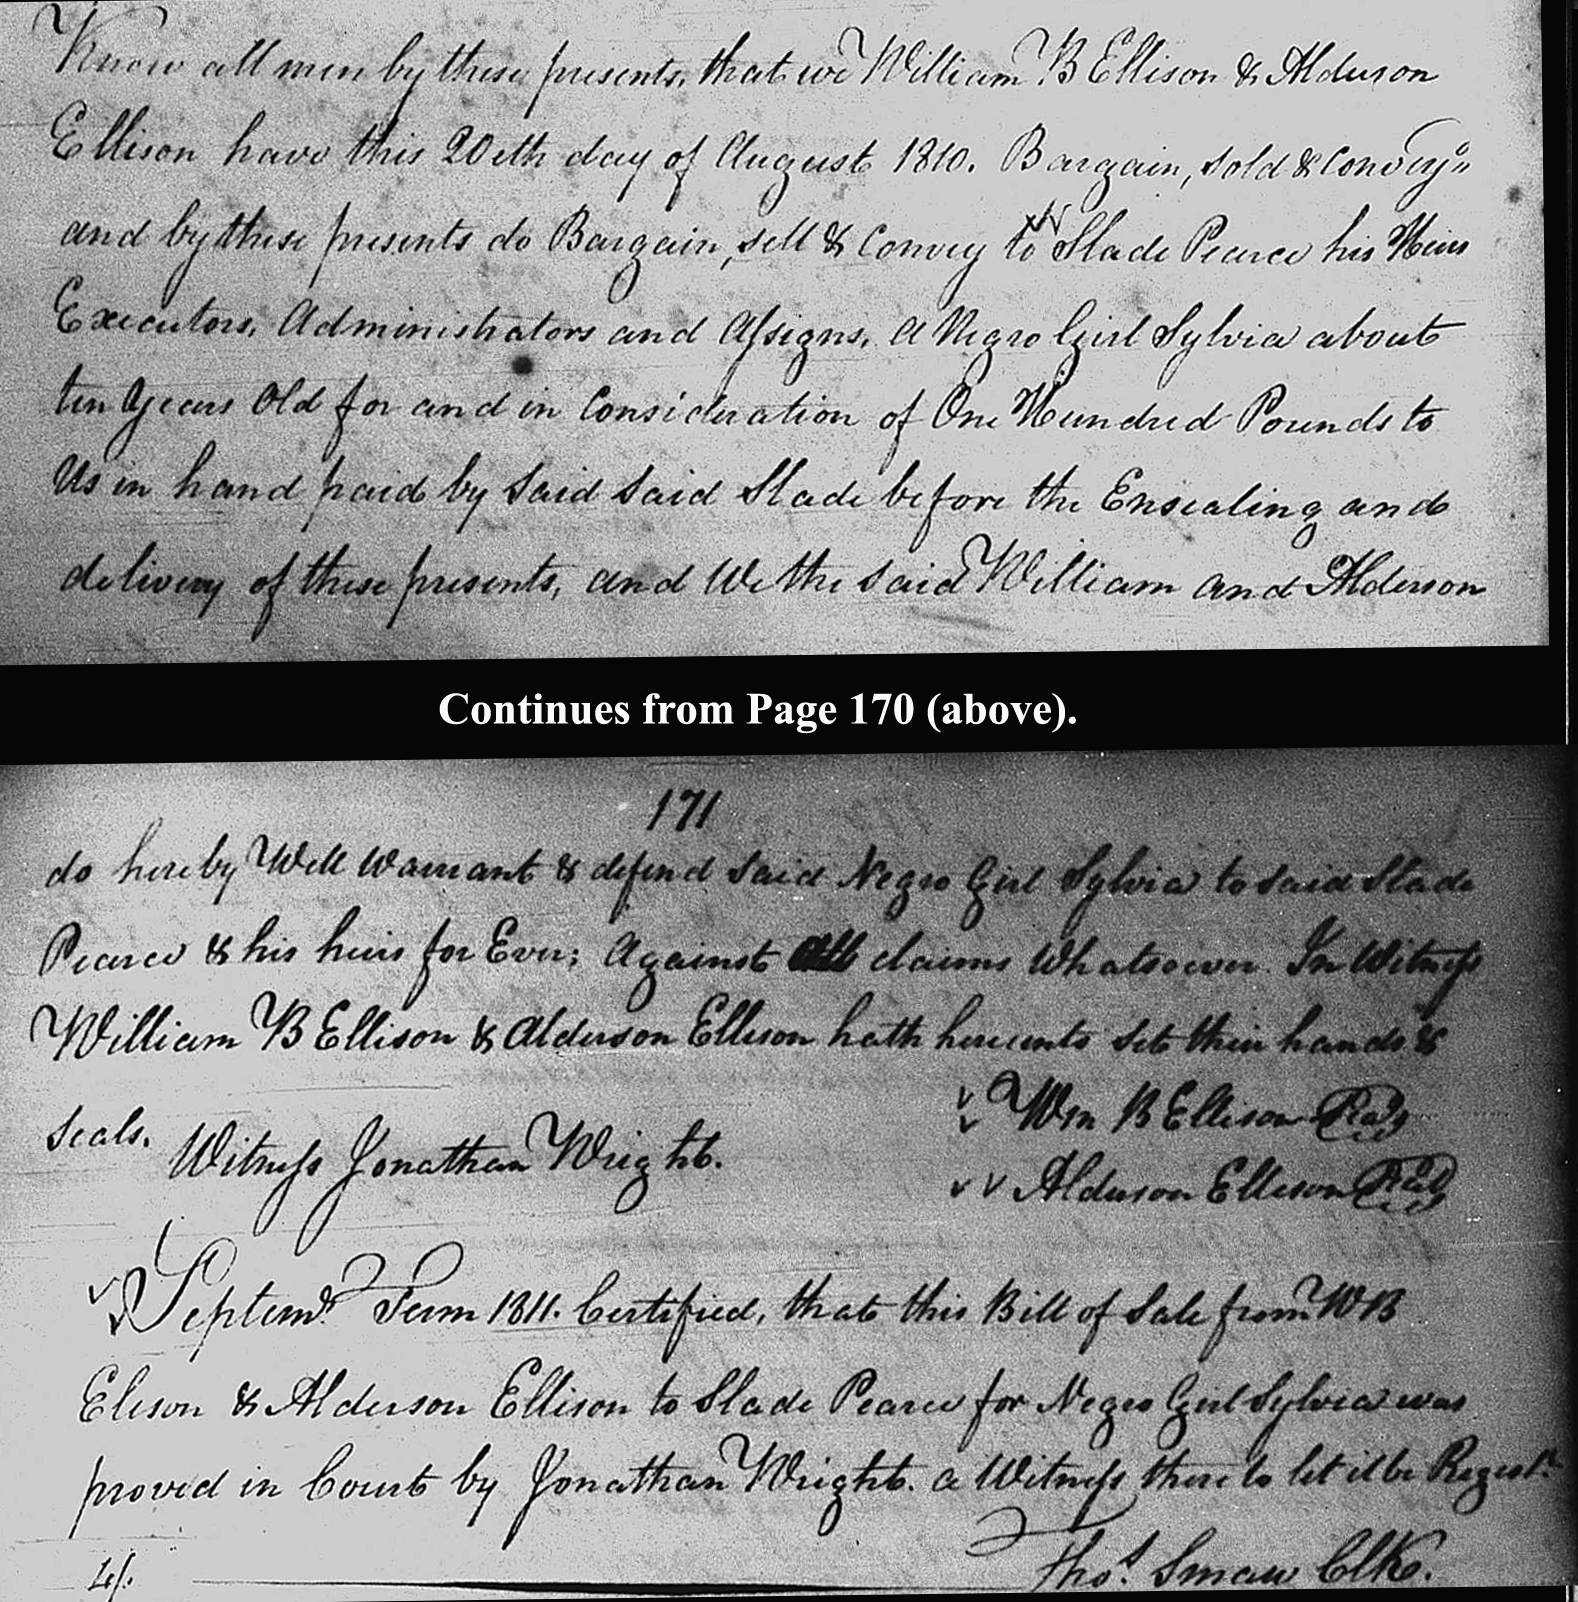 Know all men by these presents, that we William B Ellison & Alderson
Ellison have this 20eth day of August 1810. Bargain, sold & Convey"d
and by these presents do Bargain, sell & Convey to Slade Pearce his Heirs
Executors, Administrators and Assigns, A Negro Girl Sylvia about
ten Years Old for and in Consideration of One Hundred Pounds to
Us in hand paid by Said Said Slade before the Ensealing and
delivery of these presents, and We the Said William and Alderson
Continues from Page 170 (above).
171
do hereby Well Warrant & defend Said Negro Girl Sylvia to Said Slade
Pearce & his heirs for Ever; Against All claims Whatsoever. In Witness
William B Ellison & Alderson Ellison hath hereunto Set their hands &
Seals.
Wm B Ellison Seal
Witness Jonathan Wright.
Alderson Ellison Seal
Septemr. Term 1811. Certified, that this Bill of Sale from W B
Elison & Alderson Ellison to Slade Pearce for Negro Girl Sylvia was
proved in Court by Jonathan Wright. a Witness there to let it be Regestd.
Thos. Smaw Clk.